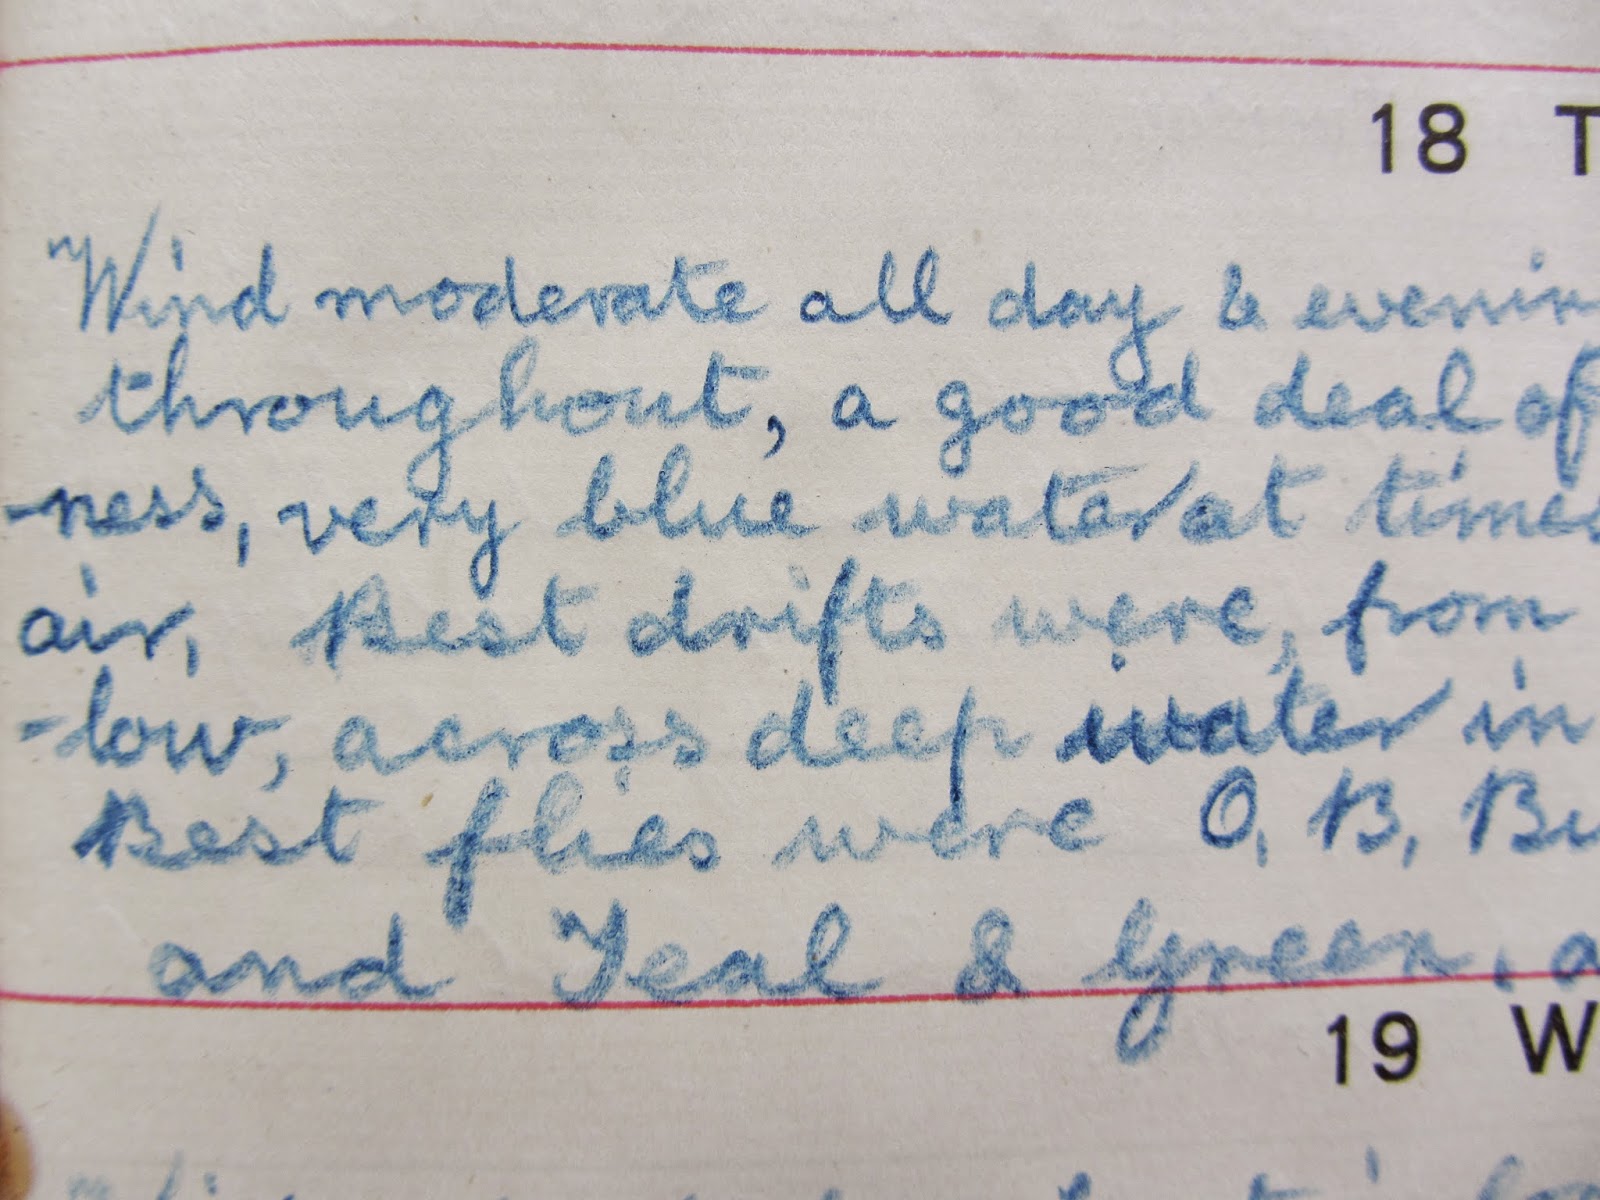 18 T
Wind moderate all day & evenin
throughout, a good deal of
-ness, very blue water at times
air, Best drifts were, from
-low, across deep water in
Best flies were O, B, Bu
and Teal & Green, a
19 W